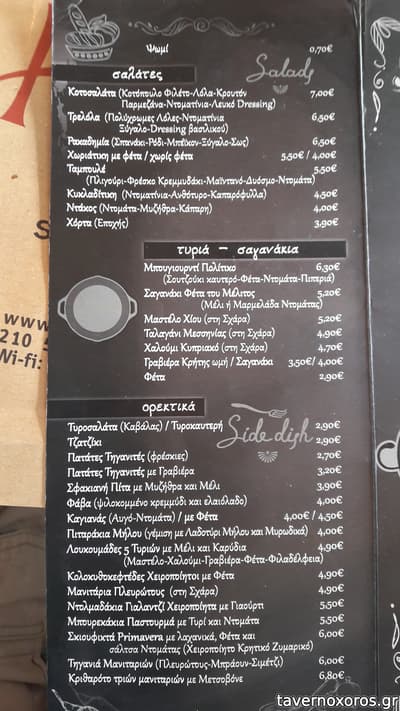 Ψωμί 0,70€
σαλάτες Salads
Κοτοσαλάτα (Κοτόπουλο Φιλέτο-Λόλα-Κρουτόν 7,00€
Παρμεζάνα-Ντοματίνια-Λευκό Dressing)
Τρελόλα (Πολύχρωμες Λόλες-Ντοματίνια 6,50€
Ξύγαλο-Dressing βασιλικού)
Ρακαδημία (Σπανάκι-Ρόδι-Μπέϊκον-Ξύγαλο-Σως) 6,50€
Χωριάτικη με φέτα / χωρίς φέτα 5,50€ / 4,00€
Ταμπουλέ 5,50€
(Πλιγούρι-Φρέσκο Κρεμμυδάκι-Μαϊντανό-Δυόσμο-Ντομάτα)
Κυκλαδίτικη (Ντοματίνια-Ανθότυρο-Καπαρόφυλλα) 4,50€
Ντάκος (Ντομάτα-Μυζήθρα-Κάπαρη) 4,00€
Χόρτα (Εποχής) 3,90€
τυριά – σαγανάκια
Μπουγιουρντί Πολίτικο 6,30€
(Σουτζούκι καυτερό-Φέτα-Ντομάτα-Πιπεριά)
Σαγανάκι Φέτα του Μέλιτος 5,20€
(Μέλι ή Μαρμελάδα Ντομάτας)
Μαστέλο Χίου (στη Σχάρα) 5,20€
Ταλαγάνι Μεσσηνίας (στη Σχάρα) 4,90€
Χαλούμι Κυπριακό (στη Σχάρα) 4,70€
Γραβιέρα Κρήτης ωμή / Σαγανάκι 3,50€/ 4,00€
Φέτα 2,90€
ορεκτικά Side dish
Τυροσαλάτα (Καβάλας) / Τυροκαυτερή 2,90€
Τζατζίκι 2,90€
Πατάτες Τηγανιτές (φρέσκιες) 2,70€
Πατάτες Τηγανιτές με Γραβιέρα 3,20€
Σφακιανή Πίτα με Μυζήθρα και Μέλι 3,90€
Φάβα (ψιλοκομμένο κρεμμύδι και ελαιόλαδο) 4,00€
Καγιανάς (Αυγό-Ντομάτα) / με Φέτα 4,00€ / 4,50€
Πιταράκια Μήλου (γέμιση με Λαδοτύρι Μήλου και Μυρωδικά) 4,00€
Λουκουμάδες 5 Τυριών με Μέλι και Καρύδια 4,90€
(Μαστέλο-Χαλούμι-Γραβιέρα-Φέτα-Φιλαδέλφεια)
Κολοκυθοκεφτέδες Χειροποίητοι με Φέτα 4,90€
Μανιτάρια Πλευρώτους (στη Σχάρα) 4,90€
Ντολμαδάκια Γιαλαντζί Χειροποίητα με Γιαούρτι 5,50€
Μπουρεκάκια Παστουρμά με Τυρί και Ντομάτα 5,50€
Σκιουφικτά Primavera με λαχανικά, Φέτα και 6,00€
σάλτσα Ντομάτας (Χειροποίητο Κρητικό Ζυμαρικό)
Τηγανιά Μανιταριών (Πλευρώτους-Μπράουν-Σιμέτζι) 6,00€
Κριθαρότο τριών μανιταριών με Μετσοβόνε 6,80€
www
210
Wi-fi:
tavernoxoros.gr